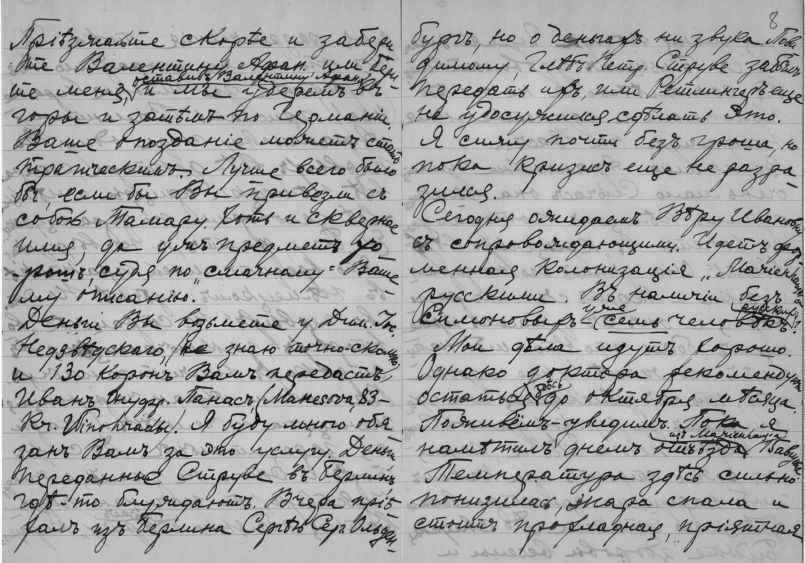 Пріѣзжайте скорѣе и забери
те Валентину Афан. или бери
те меня, оставивъ Валентину Афан.
и мы уѣдемъ въ
горы и затѣмъ по Германіи.
Ваше опозданіе можетъ стать
трагическимъ. Лучше всего было
бы, если бы Вы привезли съ
собою Тамару. Хоть и скверное
имя, да ужъ предметъ хо
рошъ, судя по „смачному" Ваше
му описанію.
Деньги Вы возьмете у Дм.
Недзвѣдскаго, не знаю точно сколько,
и 130 коронъ Вамъ передастъ
Иванъ Панасъ (Manesova, 83-
Kr. Vinohrady). Я буду много обя
занъ Вамъ за эту услугу. Деньги
переданные Струве въ Берлинѣ
гдѣ-то блуждаютъ. Вчера пріѣ
халъ изъ Берлина Сергѣй Сер. Ольден-
8
бургъ, но о деньгахъ ни звука. Пови
димому, Глѣбъ Петр. Струве забылъ
передать ихъ, или Ретлингеръ еще
не удосужился сдѣлать это.
Я сижу почти безъ гроша, но
пока кризисъ еще не разра
зился.
Сегодня ожидаемъ Вѣру Ивановну
съ сопровождающими. Идетъ фор
менная колонизація
русскими. Въ наличіи безъ
Симоновыхъ - уже семь человѣкъ.
Мои дѣла идутъ хорошо.
Однако доктора рекомендуютъ
остаться здѣсь до октября мѣсяца.
Поживёмъ-увидимъ. Пока я
намѣтилъ днемъ отъѣзда
Температура здѣсь сильно
понизилась, жара спала и
стоитъ прохладная, пріятная